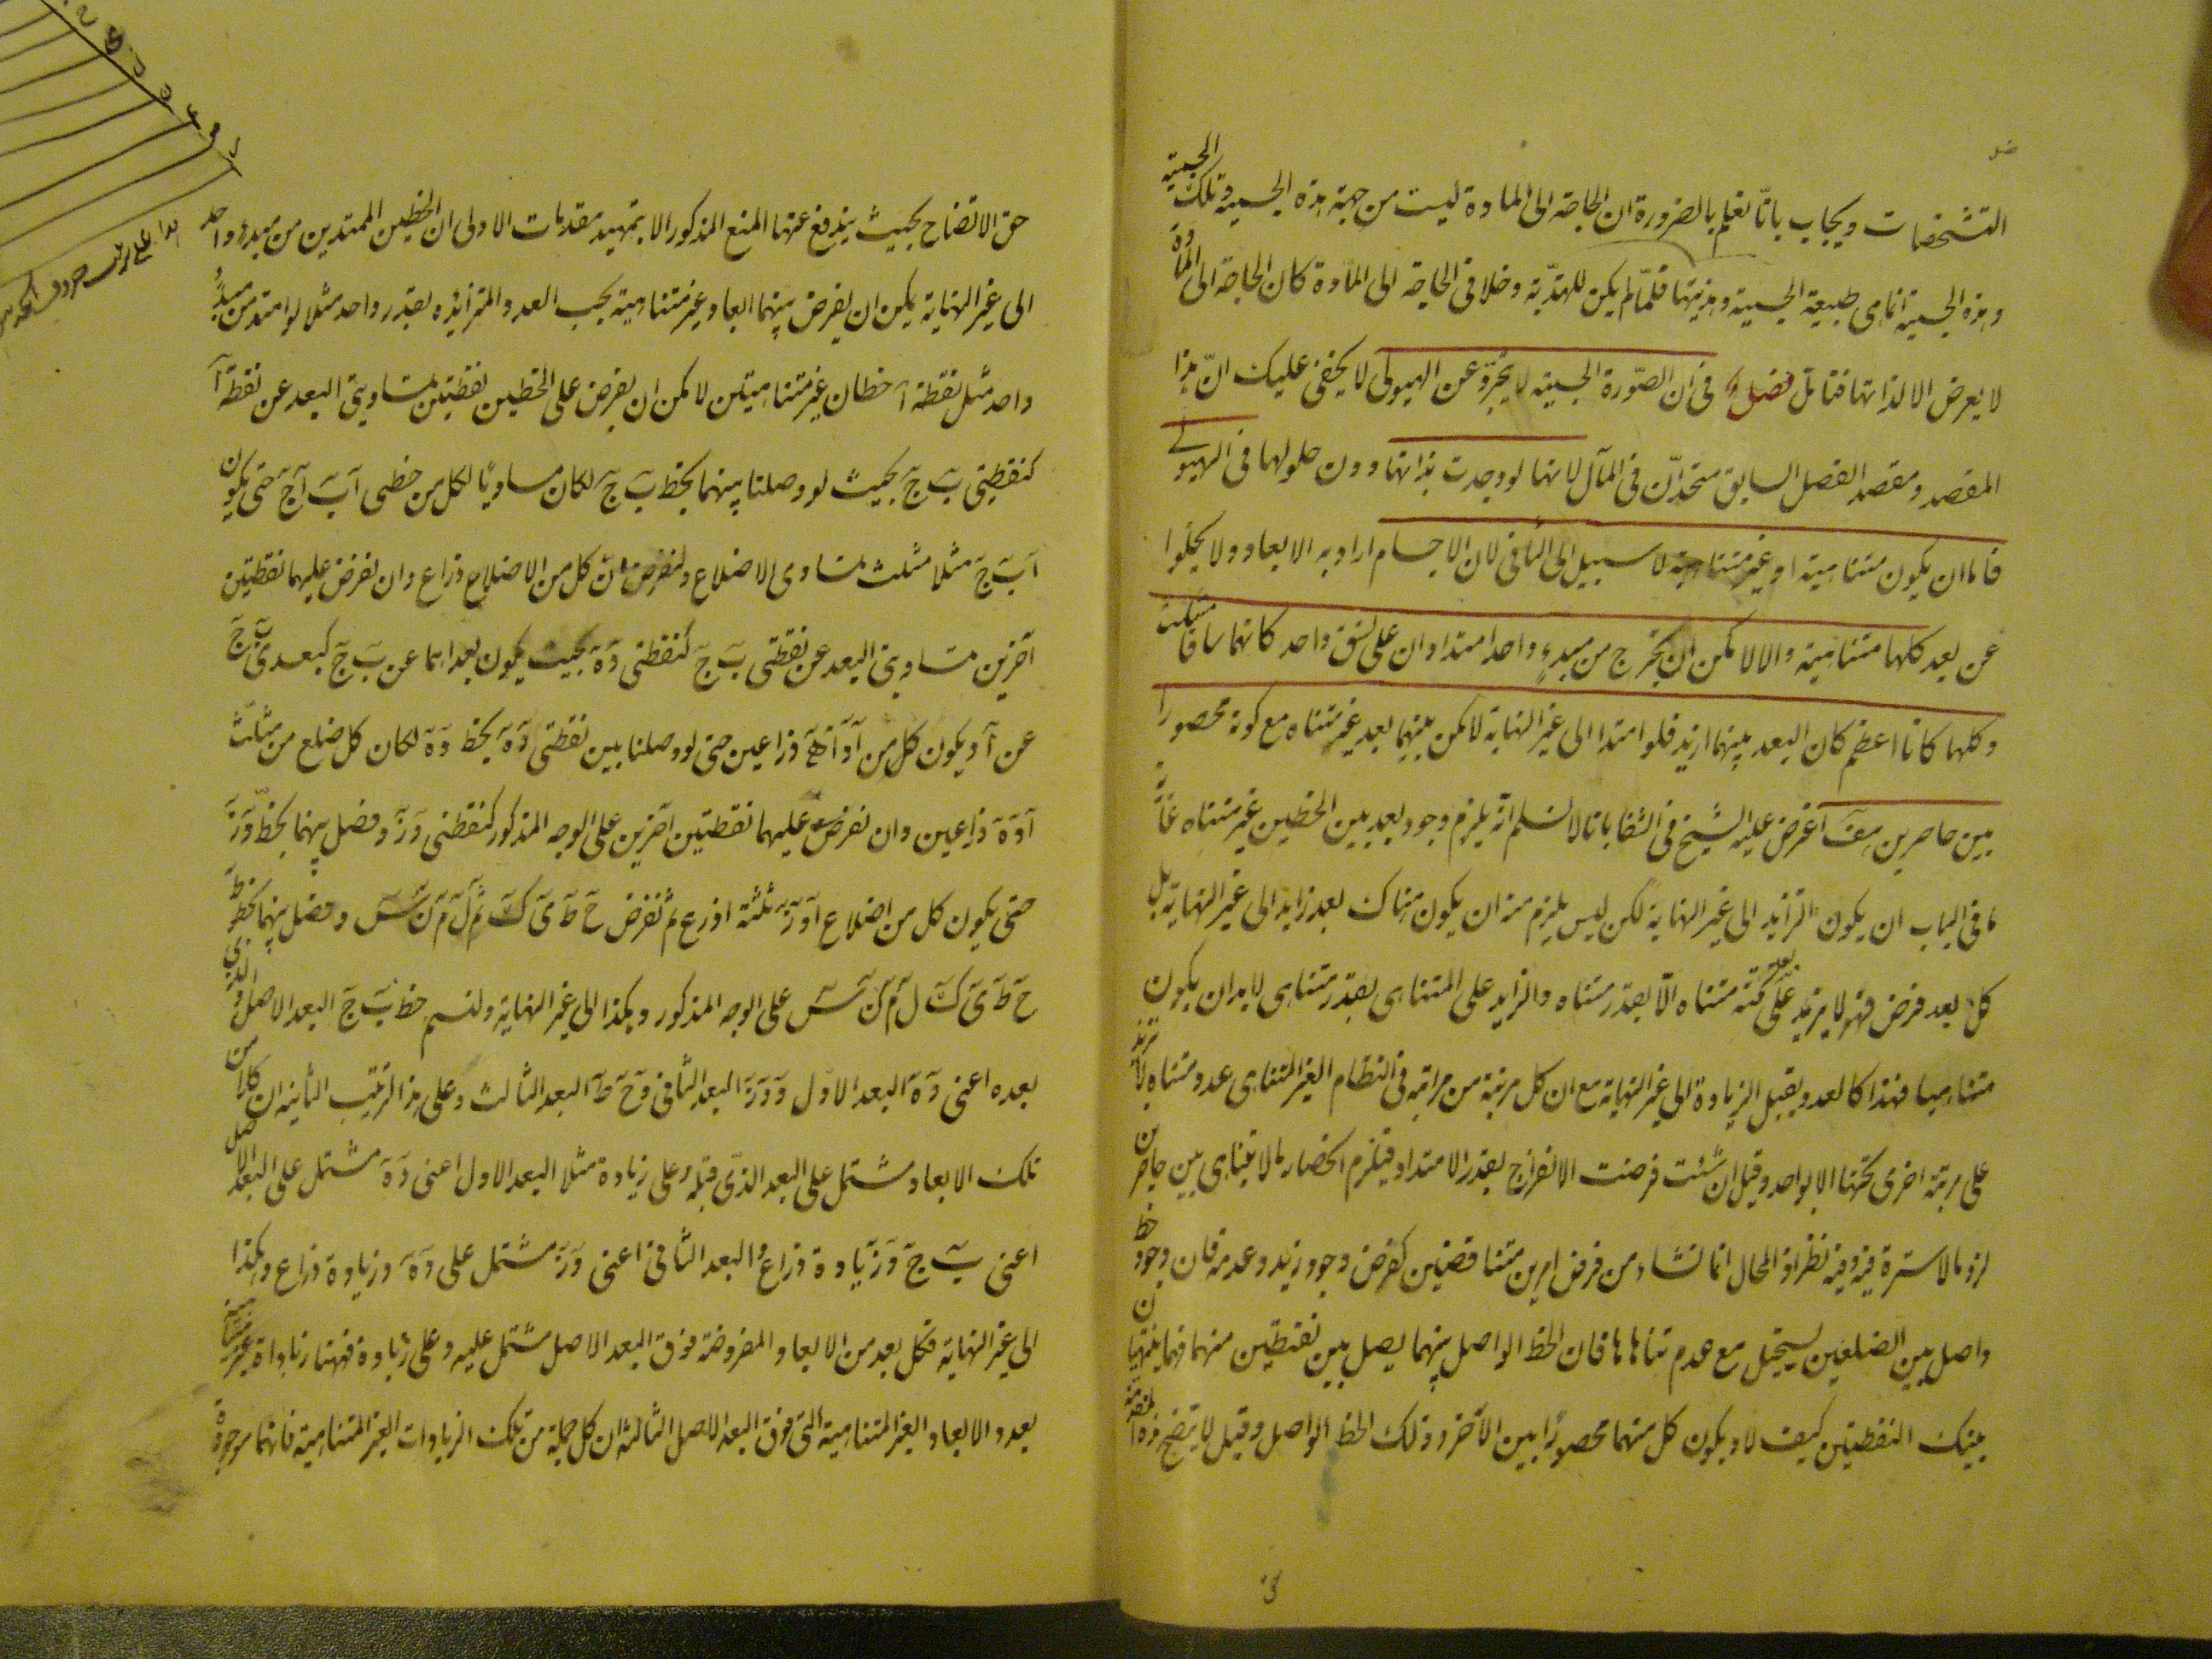 التشخصات ويجاب بانا نعلم بالضرورة ان الحاجة الى المادة ليست من جهة هذه الجسمية وتلك الجسمية
وهذه الجسمية انما هى طبيعة الجسمية وهذيتها فلما لم يكن للهذية دخلا فى الحاجة الى المادة كان الحاجة الى المادة
لا يعرض الا لذاتها فتأمل فصل فى ان الصورة الجسمية لا يتجرد عن الهيولى لا يخفى عليك ان هذا
المقصد ومقصد الفصل السابق متحدان فى المآل لانها لو وجدت بذاتها دون حلولها فى الهيولى
فاما ان يكون متناهية او غير متناهية لا سبيل الى الثانى لان الاجسام اراد به الابعاد ولا يخلوا
عن بعد كلها متناهية والا لامكن ان يخرج من مبدء واحد امتدادان على نسق واحد كانهما ساقا مثلث
وكلما كانا اعظم كان البعد بينهما ازيد فلو امتدا الى غير النهاية لامكن بينهما بعد غير متناه مع كونه محصورا
بين حاصرين هف اعترض عليه الشيخ فى الشفا بانا لا نسلم انه يلزم وجود بعد بين الخطين غير متناه غاية
ما فى الباب ان يكون التزايد الى غير النهاية لكن ليس يلزم منه ان يكون هناك بعد زايد الى غير النهاية بل
كل بعد فرض فهو لا يزيد على بعد تحته متناه الا بقدر متناه والزايد على المتناهى بقدر متناهى لابد ان يكون
متناهيا فهذا كالعدد يقبل الزيادة الى غير النهاية مع ان كل مرتبة من مراتبه فى النظام الغير المتناهى عدد متناه لا تزيد
على مرتبة اخرى تحتها الا بواحد وقيل ان شئت فرضت الانفراج بقدر الامتداد فيلزم انحصار ما لا يتناهى بين حاصرين
لزوما لا سترة فيه وفيه نظر اذ المحال انما نشاء من فرض امرين متناقضين كفرض وجود زيد وعدمه فان وجود خط
واصل بين الضلعين يستحيل مع عدم تناهاهما فان الخط الواصل بينهما يصل بين نقطتين منهما فهما ينتهيان
بتينك النقطتين كيف لا ويكون كل منهما محصورا بين الآخر وذلك الخط الواصل وقيل لا يتضح هذه المقدمة
حق الاتضاح بحيث يندفع عنها المنع المذكور الا بتمهيد مقدمات الاولى ان الخطين الممتدين من مبدء واحد
الى غير النهاية يمكن ان يفرض بينهما ابعاد غير متناهية بحسب العدد المتزايدة بقدر واحد مثلا لو امتد من مبدء
واحد مثل نقطة آ خطان غير متناهيتين لامكن ان يفرض على الخطين نقطتين متساويتى البعد عن نقطة آ
كنقطتى ب ج بحيث لو وصلنا بينهما بخط ب ج لكان مساويا لكل من خطى آب آج حتى يكون
آ ب ج مثلا مثلث متساوى الاضلاع ولنفرض ان كل من الاضلاع ذراع وان نفرض عليهما نقطتين
آخرين متساويتى البعد عن نقطتى ب ج كنقطتى د ه بحيث يكون بعداهما عن ب ج كبعدى ب ج
عن آ ويكون كل من آد آه ذراعين حتى لو وصلنا بين نقطتى د ه بخط د ه لكان كل ضلع من مثلث
آ د ه ذراعين وان نفرض عليهما نقطتين اخرين على الوجه المذكور كنقطتى و ز ونصل بينهما بخط و ز
حتى يكون كل من اضلاع آ و ز ثلثة اذرع ثم نفرض ح ط ى ك ثم ل م ن س ونصل بينهما بخط
ح ط ى ك ل م ن س على الوجه المذكور وهكذا الى غير النهاية ولنسم خط ب ج البعد الاصل والذى
بعده اعنى د ه البعد الاول و و ز البعد الثانى و ح ط البعد الثالث وعلى هذا الترتيب الثانية ان كلا من
تلك الابعاد مشتمل على البعد الذى قبله وعلى زيادة مثلا البعد الاول اعنى د ه مشتمل على البعد الاصل
اعنى ب ج وزيادة ذراع والبعد الثانى اعنى و ز مشتمل على د ه وزيادة ذراع وهكذا
الى غير النهاية فكل بعد من الابعاد المفروضة فوق البعد الاصل مشتمل عليه وعلى زيادة فههنا زيادات غير متناهية
بعدد الابعاد الغير المتناهية التى فوق البعد الاصل الثالثة ان كل جملة من تلك الزيادات الغير المتناهية فانها موجودة